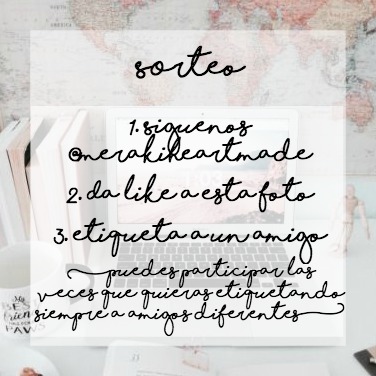 sorteo
1. siguenos
@merakiheartmade
2. da like a esta foto
3. etiqueta a un amigo
puedes participar las
veces que quieras etiquetando
siempre a amigos diferentes